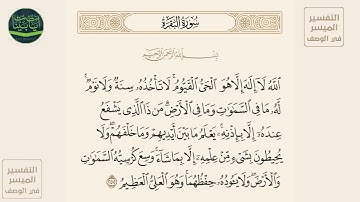 سُورَةُ البَقَرَةِ
بِسْمِ اللَّهِ الرَّحْمَٰنِ الرَّحِيمِ
التفسير
الميسر
في الوصف
ٱللَّهُ لَآ إِلَٰهَ إِلَّا هُوَ ٱلْحَىُّ ٱلْقَيُّومُ ۚ لَا تَأْخُذُهُۥ سِنَةٌ وَلَا نَوْمٌ ۚ
لَّهُۥ مَا فِى ٱلسَّمَٰوَٰتِ وَمَا فِى ٱلْأَرْضِ ۗ مَن ذَا ٱلَّذِى يَشْفَعُ
عِندَهُۥٓ إِلَّا بِإِذْنِهِۦ ۚ يَعْلَمُ مَا بَيْنَ أَيْدِيهِمْ وَمَا خَلْفَهُمْ ۖ وَلَا
يُحِيطُونَ بِشَىْءٍ مِّنْ عِلْمِهِۦٓ إِلَّا بِمَا شَآءَ ۚ وَسِعَ كُرْسِيُّهُ ٱلسَّمَٰوَٰتِ
وَٱلْأَرْضَ ۖ وَلَا يَـُٔودُهُۥ حِفْظُهُمَا ۚ وَهُوَ ٱلْعَلِىُّ ٱلْعَظِيمُ ٢٥٥
التفسير
الميسر
في الوصف